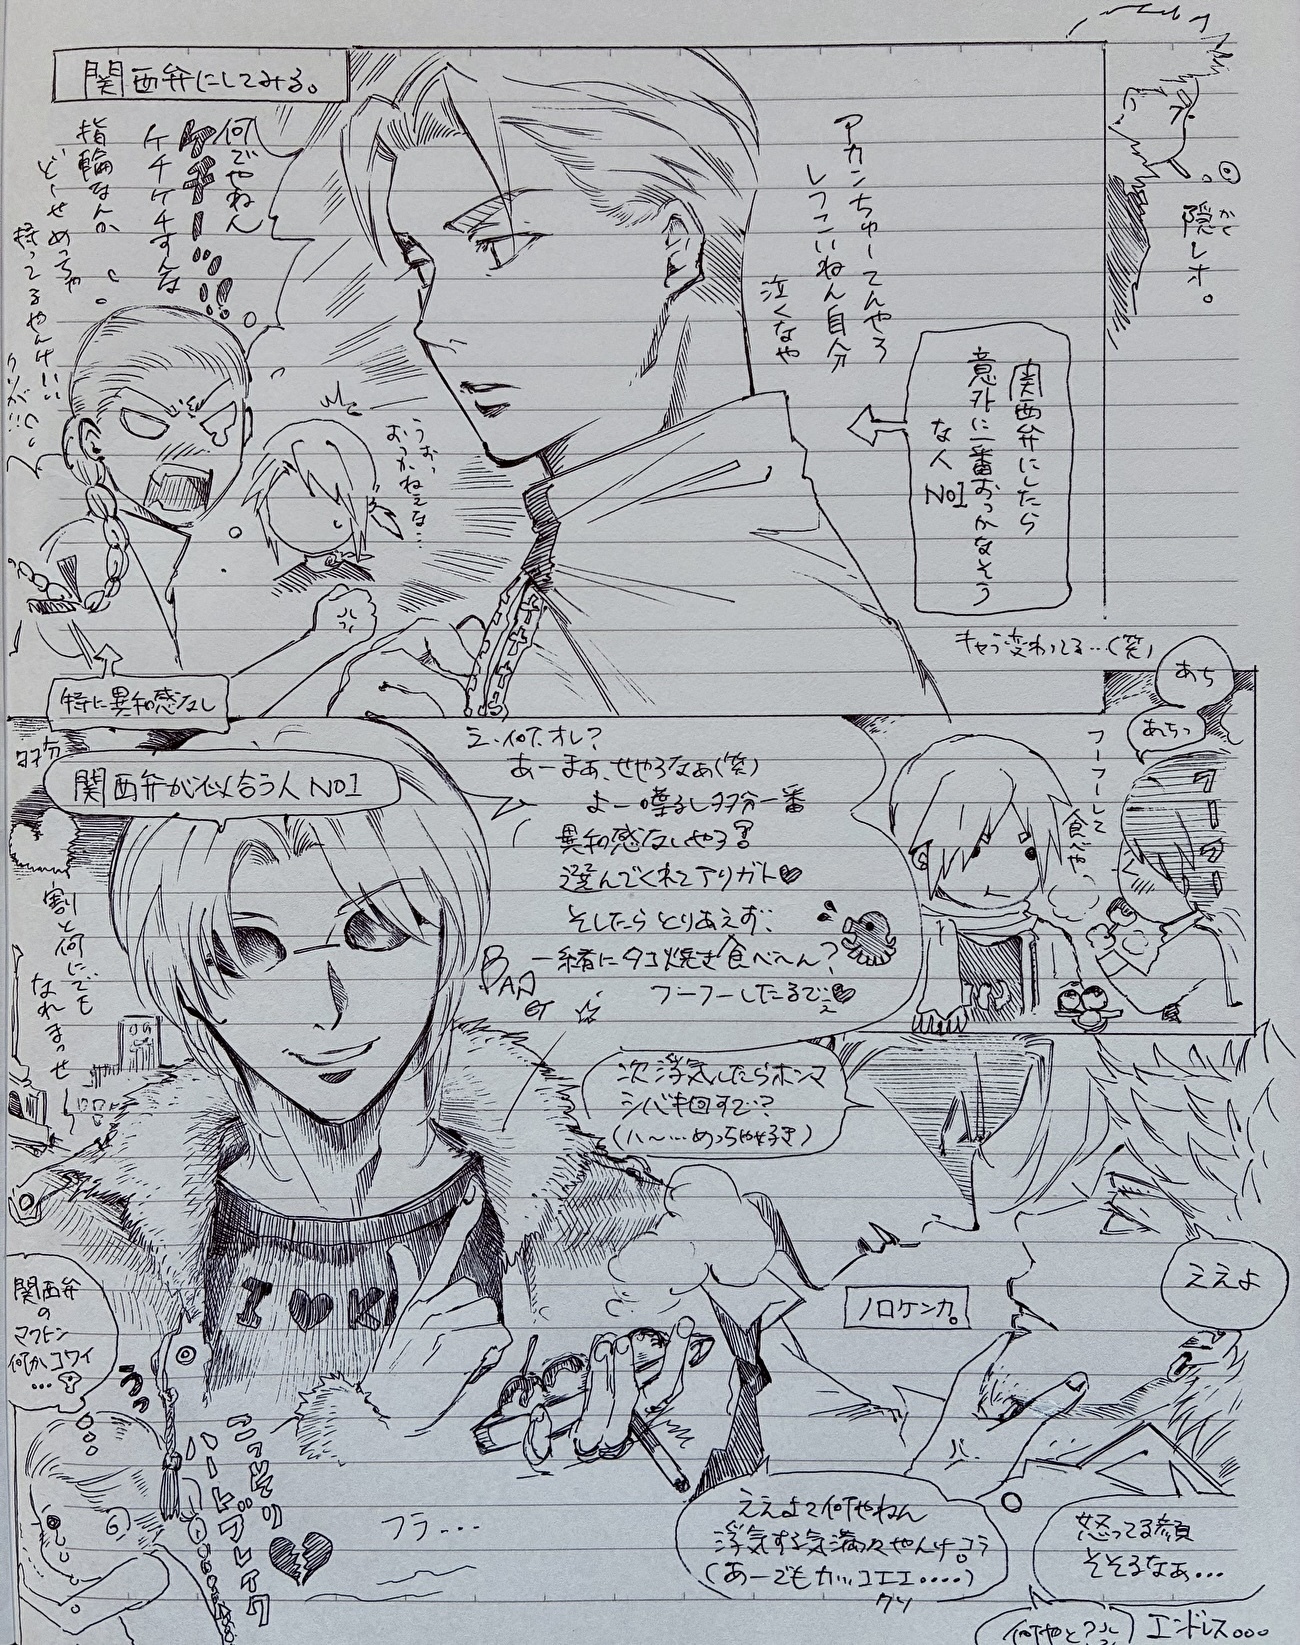 関西弁にしてみる。
何でやねん
ケチー!!
ケチケチすんな
指輪なんか
どーせめっちゃ
持ってるやんけ
クソが!!
アカンちゅーてんやろ
しつこいねん自分
泣くなや
隠レオ。
かく
関西弁にしたら
意外に一番おっかなそう
な人
No1
うおっ
おっかねえな…
キャラ変わってる…(笑)
特に異和感なし
多分
関西弁が似合う人 No1
え、何、オレ?
あーまぁ、せやろなぁ(笑)
よー喋るし多分一番
異和感なしやろ!!
選んでくれてアリガト♥
そしたらとりあえず…
一緒にタコ焼き食べへん?
フーフーしたるで…♥
割と何にでも
なれまっせ
あち
あちっ
フーフーして
食べやっ
次浮気したらホンマ
シバキ回すで?
(ハ〜…めっちゃ好き)
I♥K
ええよ
ノロケンカ。
関西弁
の
マクトン
何かコワイ
…
こっそり
ハートブレイク
フラ…
ええよて何やねん
浮気する気満々やんけコラ
(あーでもカッコエエ……)
クソ
怒ってる顔
そそるなぁ…
何やと?
エンドレス。。。